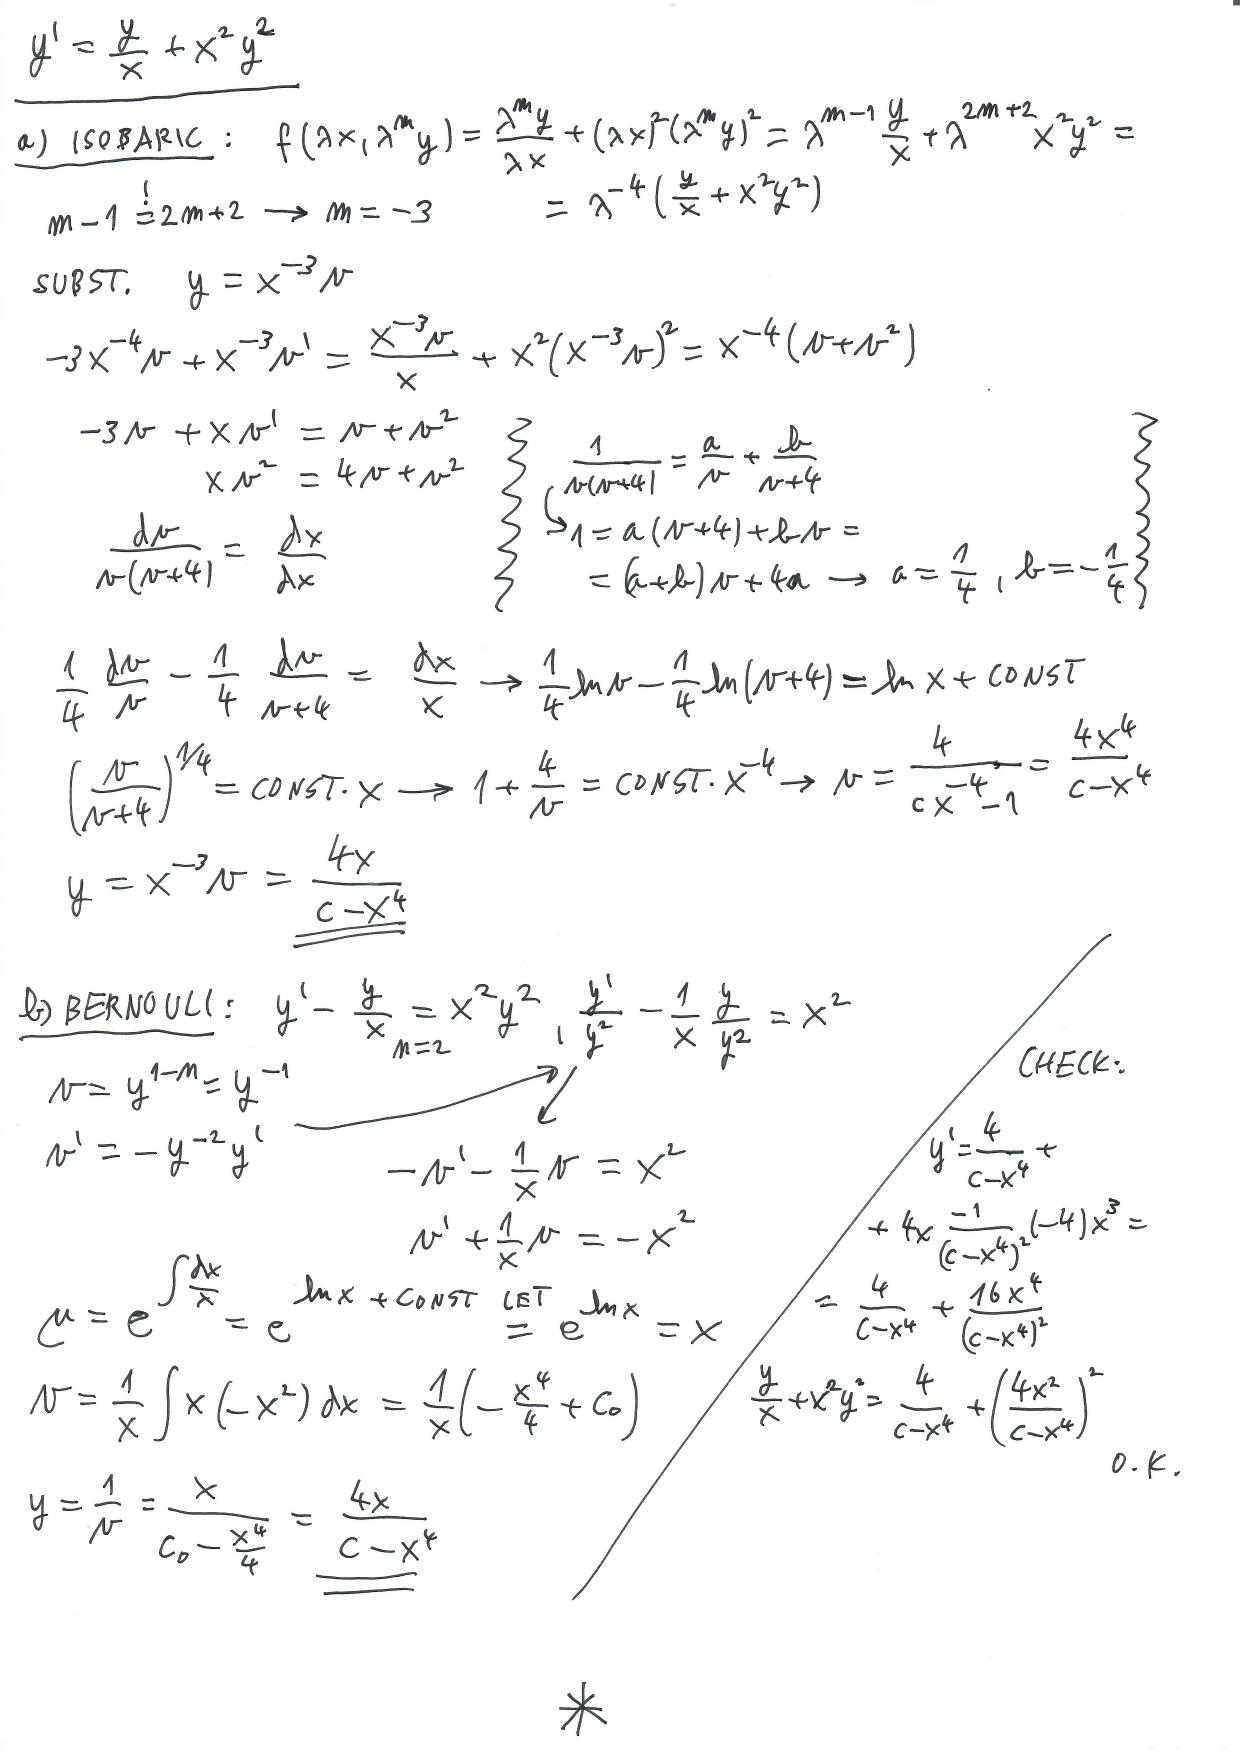 y' = y/x + x²y²
a) ISOBARIC: f(λx, λᵐy) = λᵐy/λx + (λx)²(λᵐy)² = λᵐ⁻¹ y/x + λ²ᵐ⁺² x²y² =
m-1 =! 2m+2 → m = -3 = λ⁻⁴(y/x + x²y²)
SUBST. y = x⁻³v
-3x⁻⁴v + x⁻³v' = x⁻³v/x + x²(x⁻³v)² = x⁻⁴(v+v²)
-3v + xv' = v+v²
xv² = 4v+v²
dv/v(v+4) = dx/dx
1/v(v+4) = a/v + b/v+4
→ 1 = a(v+4)+bv =
= (a+b)v+4a → a = 1/4, b = -1/4
1/4 dv/v - 1/4 dv/v+4 = dx/x → 1/4 ln v - 1/4 ln(v+4) = ln x + CONST
(v/v+4)^1/4 = CONST·x → 1 + 4/v = CONST·x⁻⁴ → v = 4/cx⁻⁴-1 = 4x⁴/c-x⁴
y = x⁻³v = 4x/c-x⁴
b) BERNOULI: y' - y/x = x²y² n=2, y'/y² - 1/x y/y² = x²
v = y¹⁻ⁿ = y⁻¹
v' = -y⁻²y'
-v' - 1/x v = x²
v' + 1/x v = -x²
μ = e^∫dx/x = e^ln x + CONST LET = e^ln x = x
v = 1/x ∫x(-x²)dx = 1/x(-x⁴/4 + c₀)
y = 1/v = x/c₀-x⁴/4 = 4x/c-x⁴
CHECK:
y' = 4/c-x⁴ +
+ 4x -1/(c-x⁴)² (-4)x³ =
= 4/c-x⁴ + 16x⁴/(c-x⁴)²
y/x + x²y² = 4/c-x⁴ + (4x²/c-x⁴)²
O.K.
*